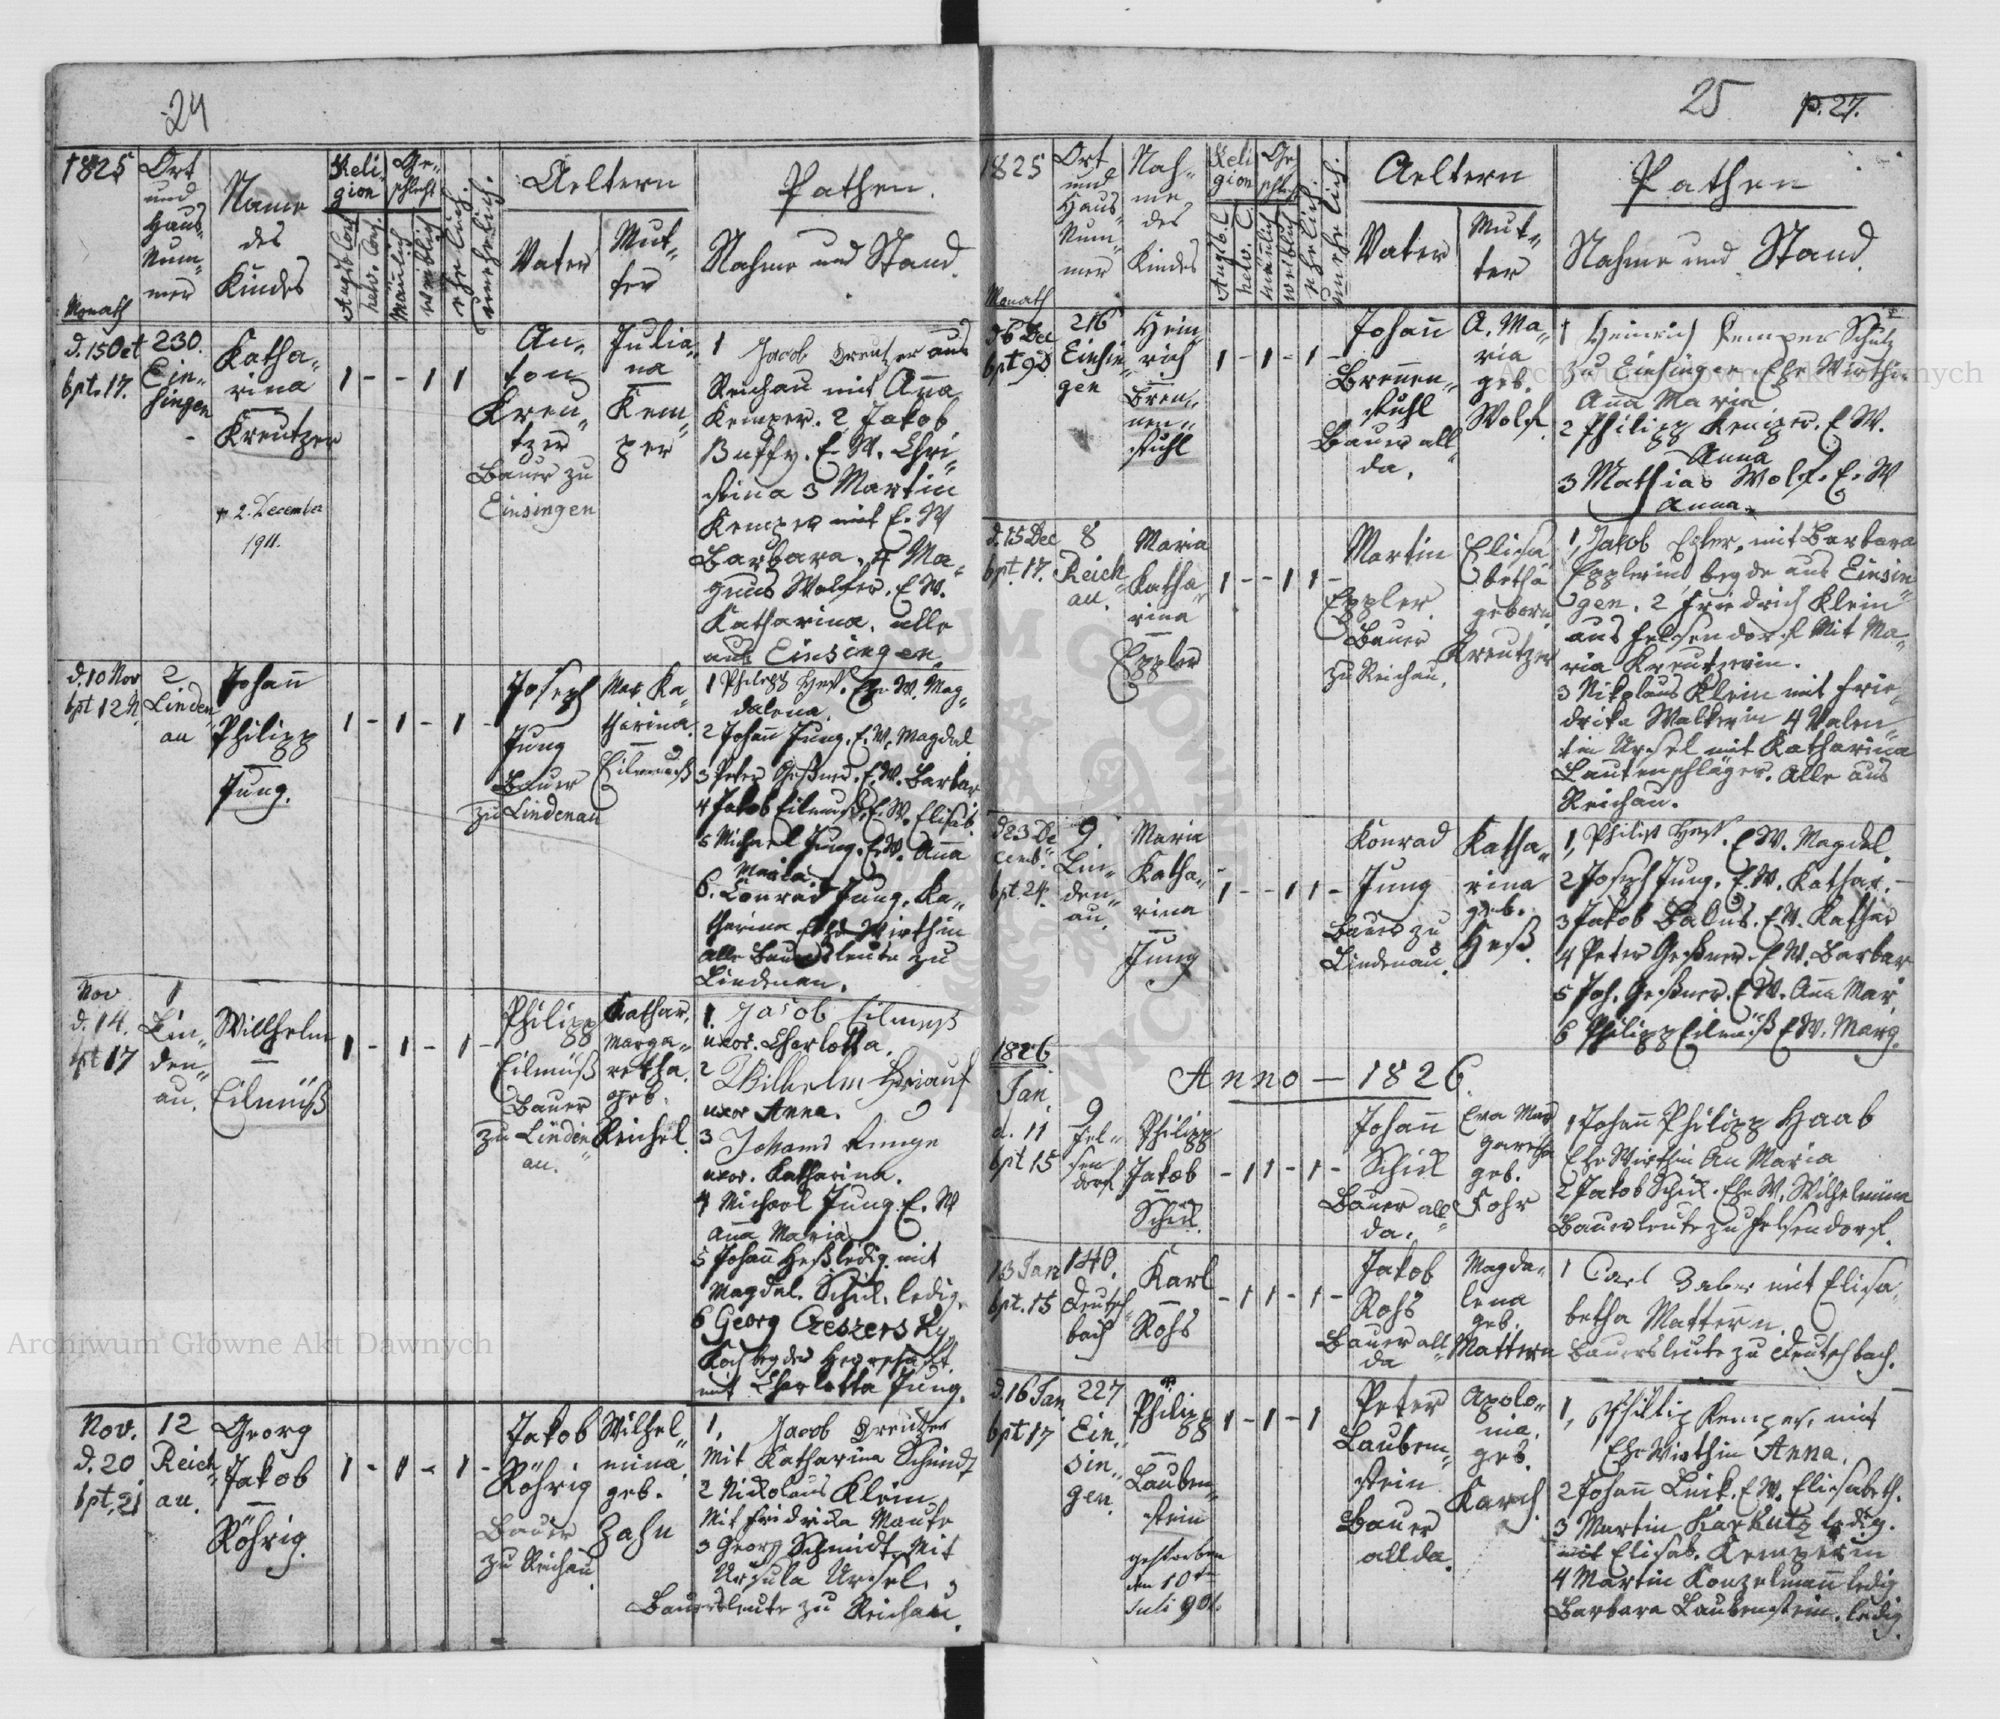 24
1825
Ort
und
Haus-
Num-
mer
Name
des
Kindes
Reli-
gion
Ge-
schlecht
Augsb. Conf.
helv. Conf.
Mänlich
weiblich
ehelich
unehelich.
Aeltern
Vater
Mut-
ter
Pathen.
Nahme und Stand.
Monath
d. 15 Oct
bpt. 17.
230.
Ein-
singen
Katha-
rina
Kreutzer
† 2. December
1911.
1 - - 1 1
An-
ton
Kreu-
tzer
Bauer zu
Einsingen
Julia-
na
Kem-
per
1 Jacob Kreutzer aus
Reichau mit Anna
Kemper. 2 Jakob
Buffy. E. W. Chri-
stina 3 Martin
Kemper mit E. W
Barbara. 4 Ma-
gnus Wolfer. E W.
Katharina. alle
aus Einsingen
d. 10 Nov
bpt 12 N
2
Linden
au
Johann
Philipp
Jung.
1 - 1 - 1 -
Joseph
Jung
Bauer
zu Lindenau
Mar Ka-
tharina
Eilmeß
1 Philipp Heß. Ehe W. Mag-
dalena
2 Johann Jung. E. W. Magdal.
3 Peter Geßner. E. W. Barbar
4 Jakob Eilmeß. E. W. Elisab.
5 Michael Jung. E. W. Anna
Maria.
6. Conrad Jung. Ka-
tharina Ehe Wirthin
alle Bauersleute zu
Lindenau.
Nov
d. 14.
bpt 17
1
Lin-
den-
au.
Willhelm
Eilmüß
1 - 1 - 1 -
Philipp
Eilmüß
Bauer
zu Linden
au.
Kathar.
Marga-
retha.
geb.
Reichel.
1. Jacob Eilmeß
uxor. Charlotta.
2 Wilhelm Heiauf
uxor Anna.
3 Johann Runge
uxor. Katharina.
4 Michael Jung. E. W
Anna Maria
5 Johann Heß ledig mit
Magdal. Schick. ledig.
6 Georg Czeszersky
Koch bey der Herrschaft.
mit Charlotta Jung.
Nov.
d. 20
bpt. 21
12
Reich-
au.
Georg
Jakob
Röhrig.
1 - 1 - 1 -
Jakob
Röhrig
Bauer
zu Reichau
Wilhel-
mina
geb.
Zahn
1, Jacob Kreutzer
Mit Katharina Schmidt
2 Nickolaus Klein
Mit Fridrica Maute
3 Georg Schmidt Mit
Ursula Ursel.
Bauersleute zu Reichau.
25
p. 27.
1825
Ort
und
Haus-
Num-
mer
Nah-
me
des
Kindes
Reli
gion
Ge
schlech
Augsb. C.
helv. C.
mänlich
weiblich
ehelich
unehelich.
Aeltern
Vater
Mut-
ter
Pathen
Nahme und Stand.
Monath
d 6 Dec
bpt 9 d
216
Einsin-
gen
Hein
rich
Bren-
nen-
stuhl
1 - 1 - 1 -
Johann
Brennen-
stuhl
Bauer all-
da.
A. Ma-
ria
geb.
Wolf.
1 Heinrich Kemper Schulz
zu Einsingen. Ehe Wirthin
Anna Maria
2 Philipp Kemper. E. W.
Anna
3 Mathias Wolf. E. W
Anna.
d. 15 Dec
bpt. 17.
8
Reich-
au.
Maria
Katha-
rina
Eppler
1 - - 1 1 -
Martin
Eppler
Bauer
zu Reichau.
Elisa
betha
geborn
Kreutzer
1, Jakob Epler, mit Barbara
Epplerin beyde aus Einsin-
gen. 2 Friedrich Klein
aus Felsendorf Mit Ma-
ria Kreutzerin.
3 Nikolaus Klein mit Frie-
drika Walkerin 4 Valen-
tin Ursel mit Katharina
Lautenschläger. Alle aus
Reichau.
d 23 De
cemb.
bpt. 24.
9
Lin-
den-
au.
Maria
Katha-
rina
Jung
1 - - 1 1 -
Konrad
Jung
Bauer zu
Lindenau.
Katha-
rina
geb.
Heß.
1, Philip Heß. E W. Magdal.
2 Joseph Jung. E. W. Kathar.
3 Jakob Balus. E W. Kathar
4 Peter Geßner. E W. Barbar
5 Joh. Geßner. E W. Anna Mar
6 Philipp Eilmüß E W. Marg.
1826
Anno - 1826
Jan.
d. 11
bpt 15
9
Fel-
sen
dorf
Philipp
Jakob
Schick.
- 1 1 - 1 -
Johann
Schick
Bauer all-
da.
Eva Mar
garetha
geb.
Fohr
1 Johann Philipp Haab
Ehe Wirthin An Maria
2 Jakob Schick. Ehe W. Wilhelmina
Bauersleute zu Felsendorf.
13 Jan
bpt. 15
140.
Deutsch-
bach
Karl
Rohs
- 1 1 - 1 -
Jakob
Rohs
Bauer all-
da
Magda-
lena
geb.
Mattern
1 Carl Zaber mit Elisa-
betha Mattern.
Bauersleute zu Deutschbach.
d. 16 Jan
bpt 17
227
Ein-
sin-
gen
Philipp
Lauben-
stein
gestorben
den 10ten
Juli 901.
1 - 1 - 1
Peter
Lauben-
stein
Bauer
allda
Apolo-
nia.
geb.
Karch.
1, Philip Kemper, mit
Ehe Wirthin Anna.
2 Johann Luik. E W. Elisabeth.
3 Martin Karkutz ledig.
mit Elisab. Kemperin
4 Martin Konzelmann ledig
Barbara Laubenstein. ledig.
Archiwum Główne Akt Dawnych
Archiwum Główne Akt Dawnych